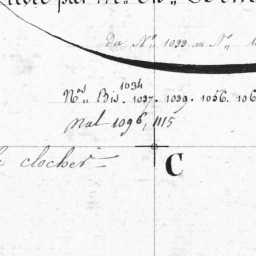 levée par M.
Du N° 1033 au N°
1034
Nos Bis. 1037. 1039. 1056. 106
Nat 1096, 1115
clocher
C